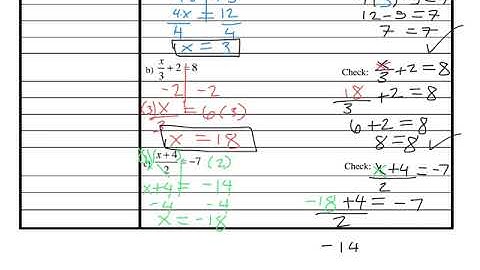 4x = 12
4 4
x = 3
12-5=7
7 = 7
b) x/3 + 2 = 8
-2 -2
(3) x/3 = 6 (3)
x = 18
Check: x/3 + 2 = 8
18/3 + 2 = 8
6+2 = 8
8=8
c) (x+4)/2 = -7 (2)
x+4 = -14
-4 -4
x = -18
Check: x+4/2 = -7
-18+4/2 = -7
-14